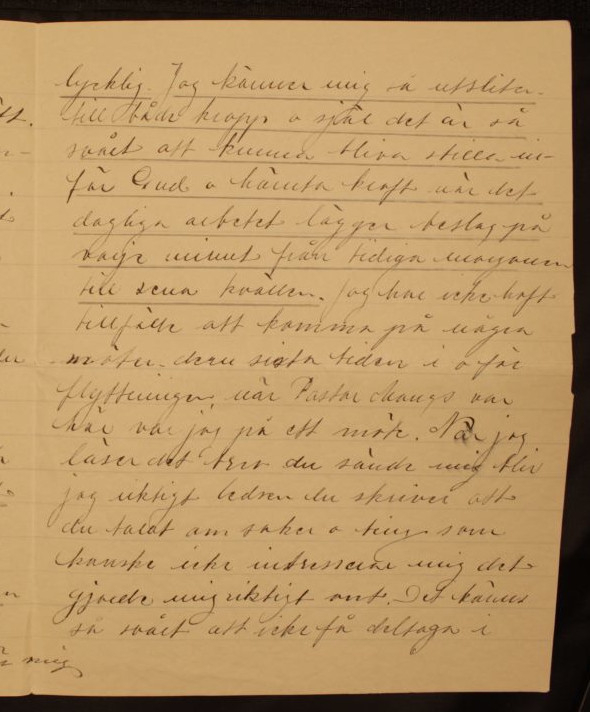 lycklig. Jag känner mig så utsliten
till både kropp o själ det är så
svårt att kunna bliva stilla in-
för Gud o hämta kraft när det
dagliga arbetet lägger beslag på
varje minut från tidiga morgonen
till sena kvällen. Jag har icke haft
tillfälle att komma på några
möten denn sista tiden i o för
flyttningen, när Pastor Mangs var
här var jag på ett möte. När jag
läser det brev du sände mig blir
jag riktigt ledsen du skriver att
du talat om saker o ting som
kanske icke intressera mig det
gjorde mig riktigt ont. Det känns
så svårt att icke få deltaga i
mig